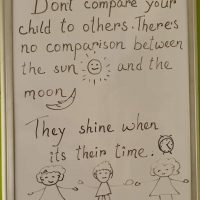 Dont compare your
child to others. There's
no comparison between
the sun and the
moon
They shine when
its their time.